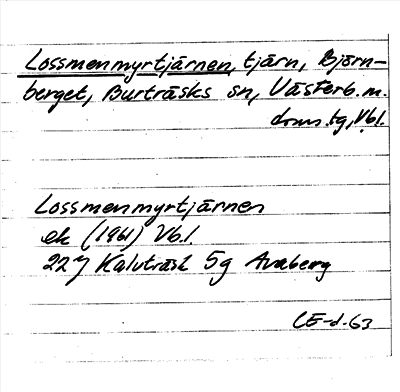 Lossmenmyrtjärnen, tjärn, Björn-
berget, Burträsks sn, Västerb. m.
doms.tg, Vbl.
Lossmenmyrtjärnen
ek (1961) Vb.l.
22J Kalvträsk 5g Avaberg
CE-d-63